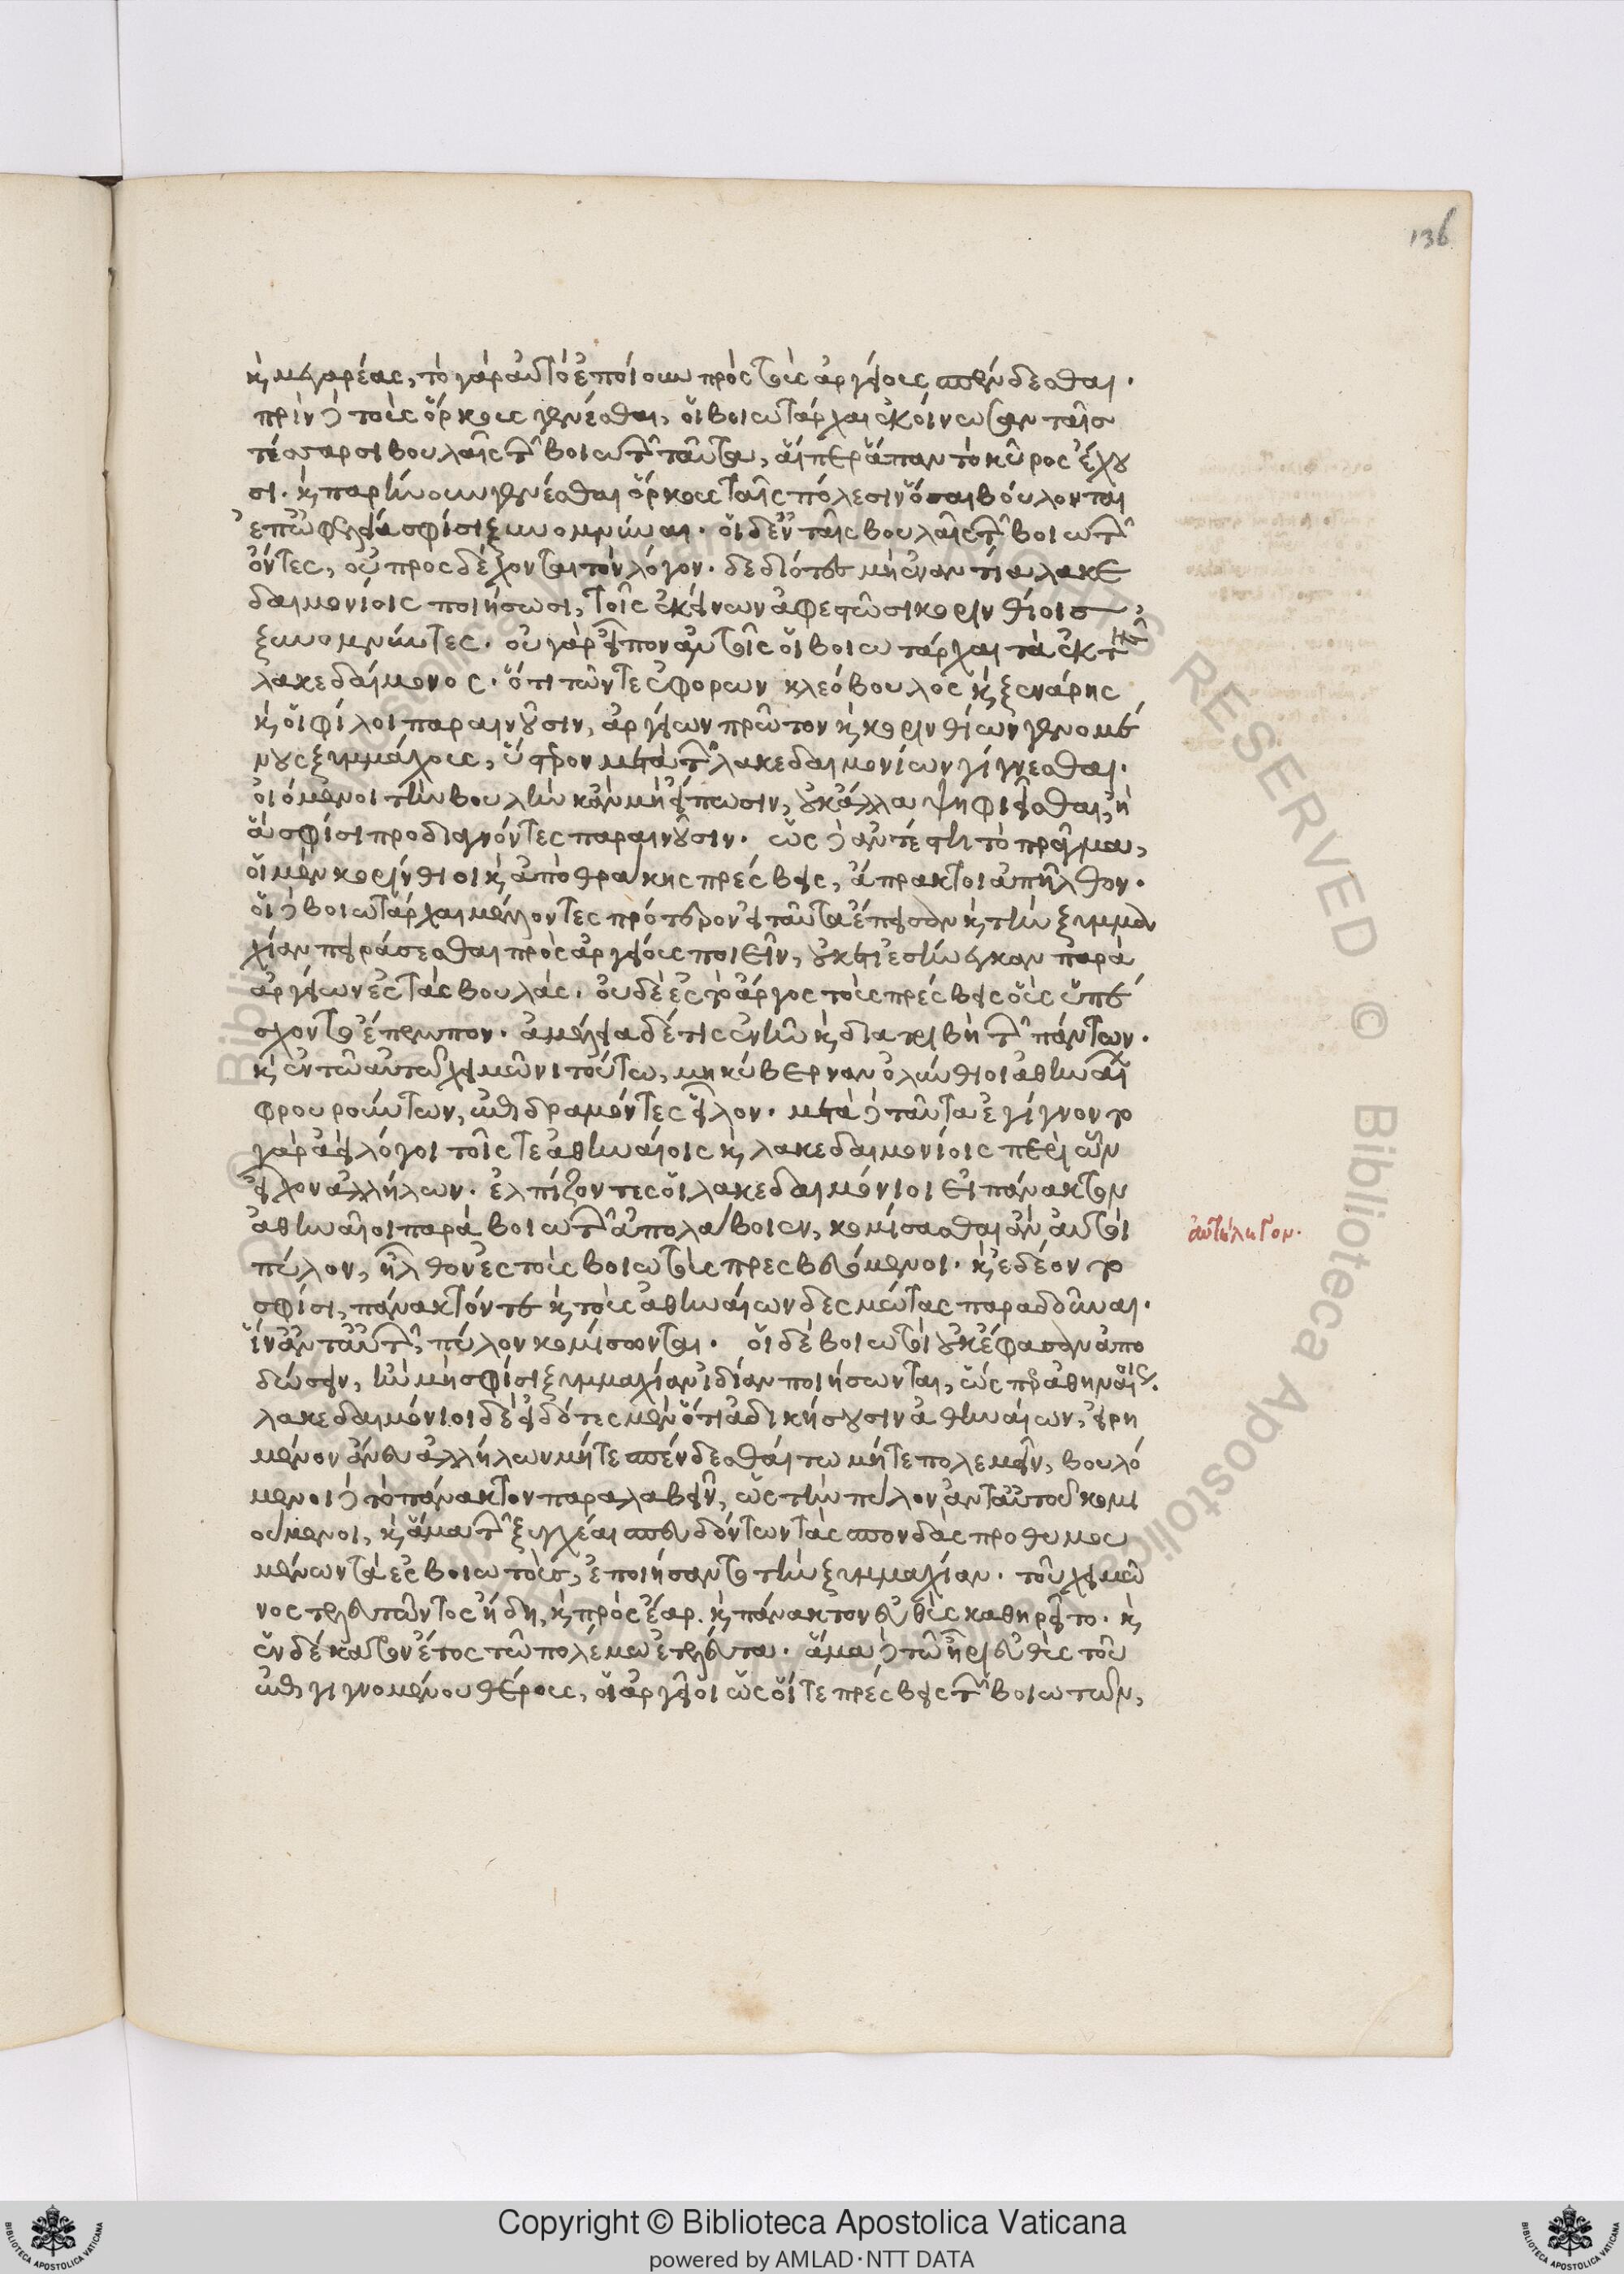 136
καὶ μεγαρέας, τὸ γὰρ αὐτὸ ἐποίουν πρὸς τοὺς ἀργείους σπένδεσθαι.
πρὶν δὲ τοὺς ὅρκους γενέσθαι, οἱ βοιωτάρχαι ἐκοίνωσαν ταῖσ
τέσσαρσι βουλαῖς τῶν βοιωτῶν ταῦτα, αἵπερ ἅπαν τὸ κῦρος ἔχου
σι. καὶ παρῄνουν γενέσθαι ὅρκους ταῖς πόλεσιν ὅσαι βούλονται
ἐπ' ὠφελείᾳ σφίσι ξυνομνύναι. οἱ δ' ἐν ταῖς βουλαῖς τῶν βοιωτῶν
ὄντες, οὐ προσδέχονται τὸν λόγον. δεδιότες μὴ ἐναντία λακε
δαιμονίοις ποιήσωσι, τοῖς ἐκείνων ἀφεστῶσι κορινθίοισ
ξυνομνύντες. οὐ γὰρ εἶπον αὐτοῖς οἱ βοιωτάρχαι τὰ ἐκ τῆς
λακεδαίμονος. ὅτι τῶν τε ἐφορων κλεόβουλος καὶ ξενάρης
καὶ οἱ φίλοι παραινοῦσιν, ἀργείων πρῶτον καὶ κορινθίων γενομέ
νους ξυμμάχους, ὕστερον μετὰ τῶν λακεδαιμονίων γίγνεσθαι.
οἰόμενοι τὴν βουλὴν κἂν μὴ εἴπωσιν, οὐκ ἄλλα ψηφιεῖσθαι, ἢ
ἃ σφίσι προδιαγνόντες παραινοῦσιν. ὡς δὲ ἀντέστη τὸ πρᾶγμα,
οἱ μὲν κορίνθιοι καὶ ἀπὸ θρᾴκης πρέσβεις, ἄπρακτοι ἀπῆλθον.
οἱ δὲ βοιωτάρχαι μέλλοντες πρότερον εἰ ταῦτα ἔπεισαν καὶ τὴν ξυμμα
χίαν πειράσεσθαι πρὸς ἀργείους ποιεῖν, οὐκέτι ἐσήνεγκαν παρὰ
ἀργείων ἐς τὰς βουλάς. οὐδὲ ἐς τὸ ἄργος τοὺς πρέσβεις οὓς ὑπέ
σχοντο ἔπεμπον. ἀμέλεια δέ τις ἐνῆν καὶ διατριβὴ τῶν πάντων.
καὶ ἐν τῷ αὐτῷ χειμῶνι τούτῳ, μηκύβερναν ὀλύνθιοι ἀθηναίων
φρουρούντων, ἐπιδραμόντες εἷλον. μετὰ δὲ ταῦτα ἐγίγνοντο
γὰρ ἀεὶ λόγοι τοῖς τε ἀθηναίοις καὶ λακεδαιμονίοις περὶ ὧν
εἶχον ἀλλήλων. ἐλπίζοντες οἱ λακεδαιμόνιοι εἰ πάνακτον
ἀθηναῖοι παρὰ βοιωτῶν ἀπολάβοιεν, κομίσασθαι ἂν αὐτοὶ
πύλον, ἦλθον ἐς τοὺς βοιωτοὺς πρεσβευόμενοι. καὶ ἐδέοντο
σφίσι, πάνακτόν τε καὶ τοὺς ἀθηναίων δεσμώτας παραδοῦναι.
ἵν' ἀντ' αὐτῶν, πύλον κομίσωνται. οἱ δὲ βοιωτοὶ οὐκ ἔφασαν ἀπο
δώσειν, ἢν μὴ σφίσι ξυμμαχίαν ἰδίαν ποιήσωνται, ὥσπερ ἀθηναίοις.
λακεδαιμόνιοι δὲ εἰδότες μὲν ὅτι ἀδικήσουσιν ἀθηναίων, εἰρη
μένον ἄνευ ἀλλήλων μήτε σπένδεσθαί τω μήτε πολεμεῖν, βουλό
μενοι δὲ τὸ πάνακτον παραλαβεῖν, ὡς τὴν πύλον ἀντ' αὐτοῦ κομι
ούμενοι, καὶ ἅμα τῶν ξυγχέαι σπευδόντων τὰς σπονδὰς προθυμου
μένων τὰ ἐς βοιωτοὺσ, ἐποιήσαντο τὴν ξυμμαχίαν. τοῦ χειμῶ
νος τελευτῶντος ἤδη, καὶ πρὸς ἔαρ. καὶ πάνακτον εὐθὺς καθῃρεῖτο. καὶ
ἑνδέκατον ἔτος τῷ πολέμῳ ἐτελεύτα. ἅμα δὲ τῷ ἦρι εὐθὺς τοῦ
ἐπιγιγνομένου θέρους, οἱ ἀργεῖοι ὡς οἵ τε πρέσβεις τῶν βοιωτῶν,
Copyright © Biblioteca Apostolica Vaticana
powered by AMLAD·NTT DATA